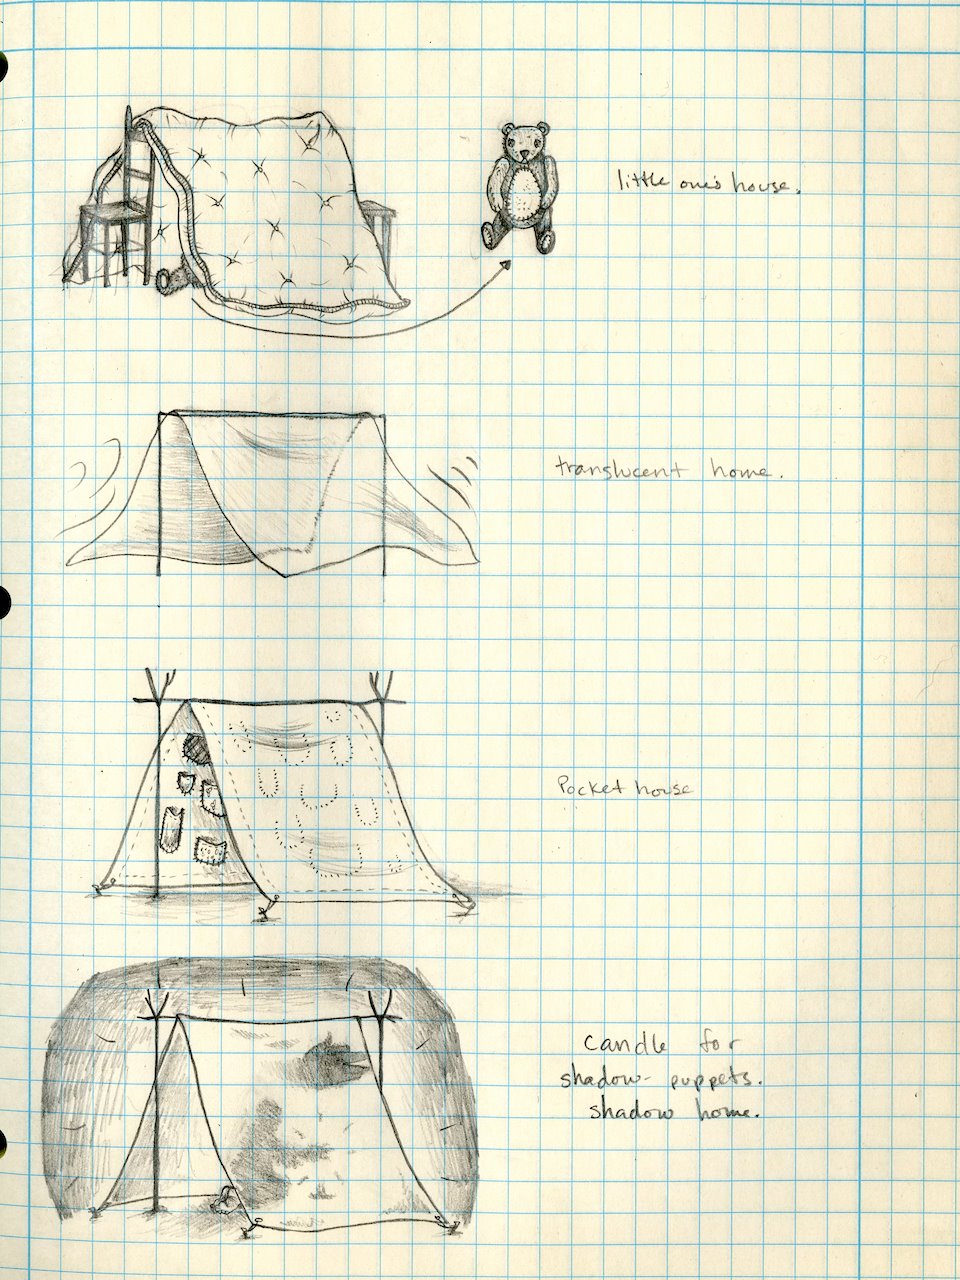 little one's house.
translucent home.
Pocket house
candle for
shadow-puppets.
shadow home.